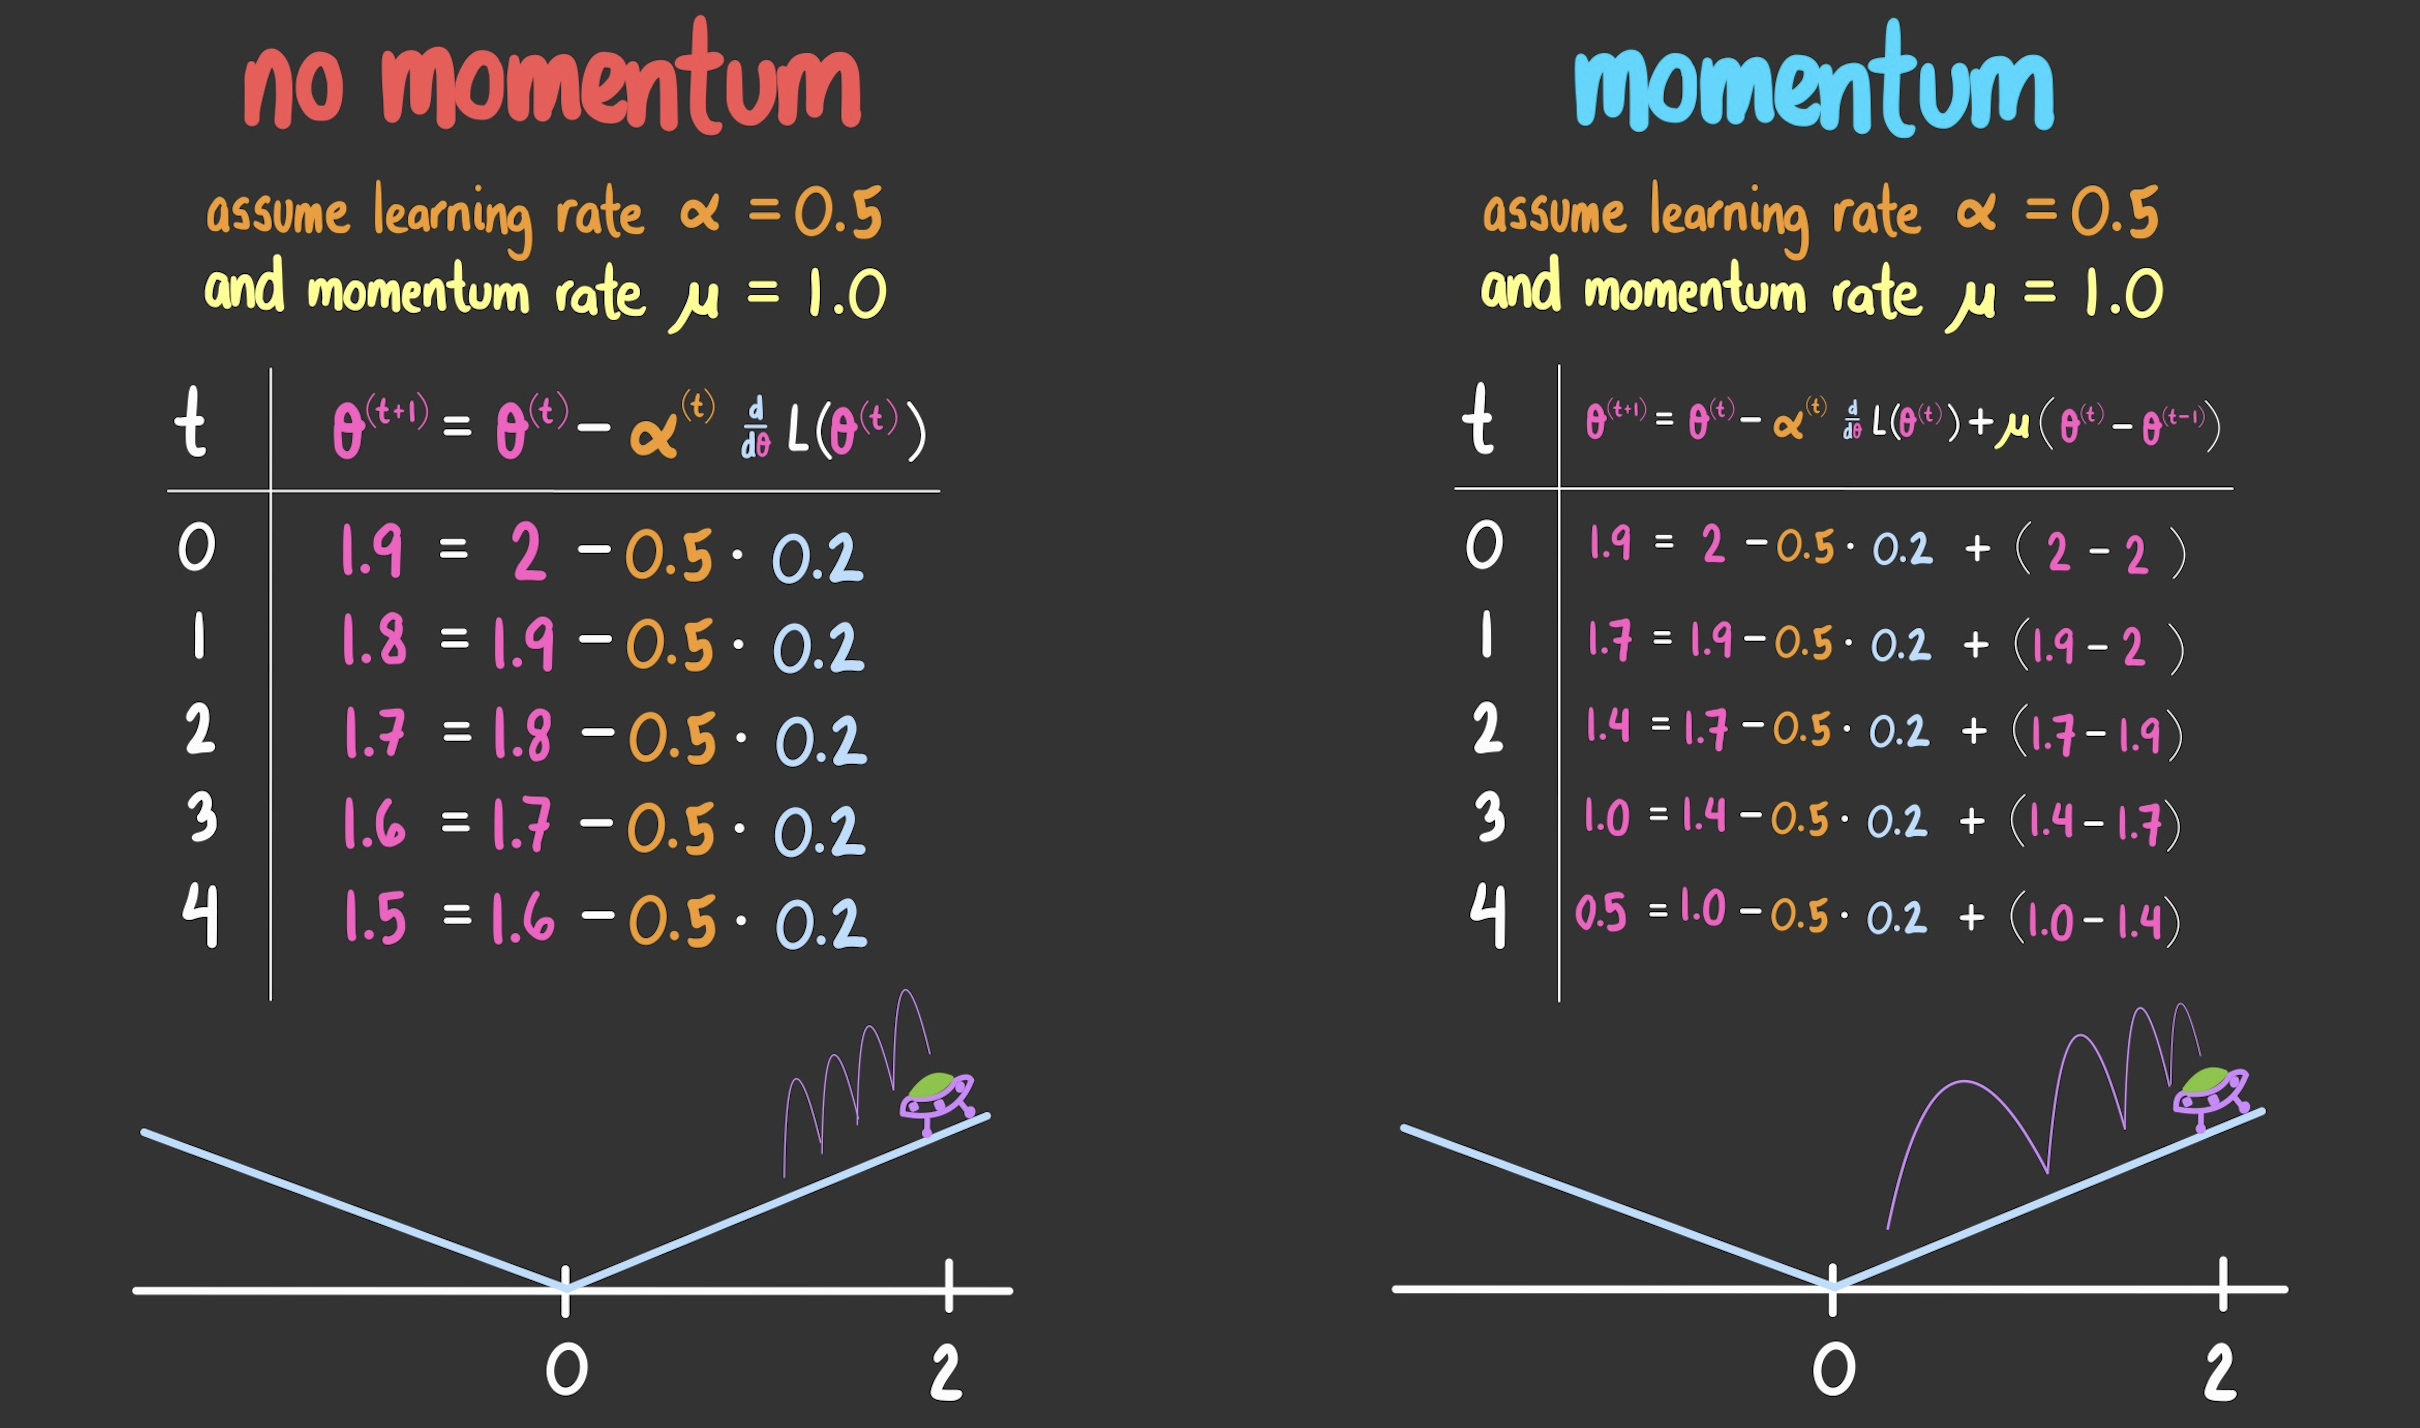 no momentum
assume learning rate α = 0.5
and momentum rate μ = 1.0
t θ^(t+1) = θ^(t) − α^(t) d/dθ L(θ^(t))
0 1.9 = 2 − 0.5 · 0.2
1 1.8 = 1.9 − 0.5 · 0.2
2 1.7 = 1.8 − 0.5 · 0.2
3 1.6 = 1.7 − 0.5 · 0.2
4 1.5 = 1.6 − 0.5 · 0.2
0 2
momentum
assume learning rate α = 0.5
and momentum rate μ = 1.0
t θ^(t+1) = θ^(t) − α^(t) d/dθ L(θ^(t)) + μ(θ^(t) − θ^(t−1))
0 1.9 = 2 − 0.5 · 0.2 + (2 − 2)
1 1.7 = 1.9 − 0.5 · 0.2 + (1.9 − 2)
2 1.4 = 1.7 − 0.5 · 0.2 + (1.7 − 1.9)
3 1.0 = 1.4 − 0.5 · 0.2 + (1.4 − 1.7)
4 0.5 = 1.0 − 0.5 · 0.2 + (1.0 − 1.4)
0 2